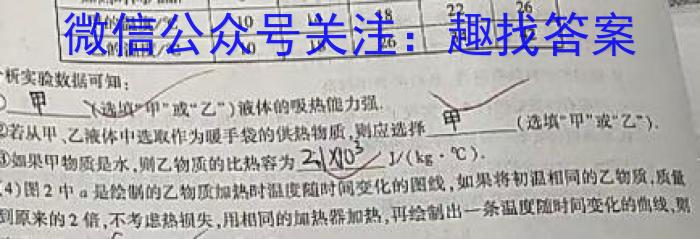 18 22 26
甲的温度/℃ 10
乙的温度/℃ 10 26
微信公众号关注：趣找答案
析实验数据可知：
甲 (选填“甲”或“乙”)液体的吸热能力强.
②若从甲、乙液体中选取作为暖手袋的供热物质,则应选择 甲 (选填“甲”或“乙”).
③如果甲物质是水,则乙物质的比热容为 2.1×10³ J/(kg·℃).
(4)图2中a是绘制的乙物质加热时温度随时间变化的图线,如果将初温相同的乙物质,质量
到原来的2倍,不考虑热损失,用相同的加热器加热,再绘制出一条温度随时间变化的曲线,则